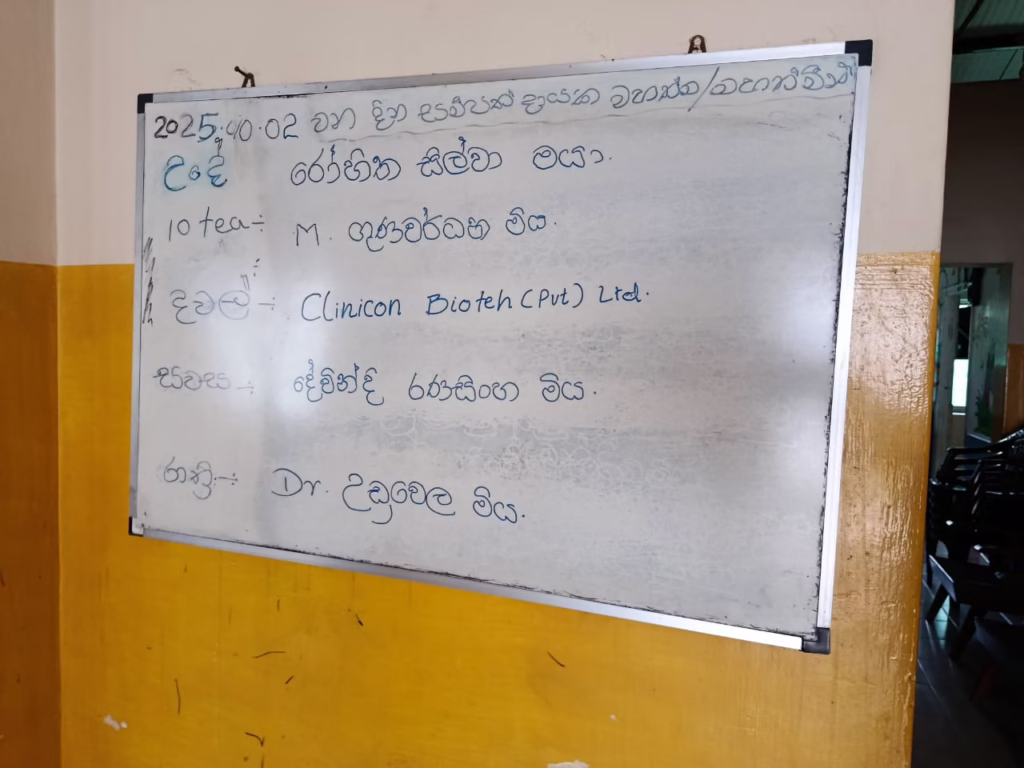 2025.10.02 වන දින සම්පත් දායක මහත්ම/මහත්මීන්
උදේ රෝහිත සිල්වා මයා.
10 tea :- M. ගුණවර්ධන මිය.
දවල් :- Clinicon Bioteh (Pvt) Ltd.
සවස :- දේවින්දි රණසිංහ මිය.
රාත්‍රී :- Dr. උඩුවෙල මිය.